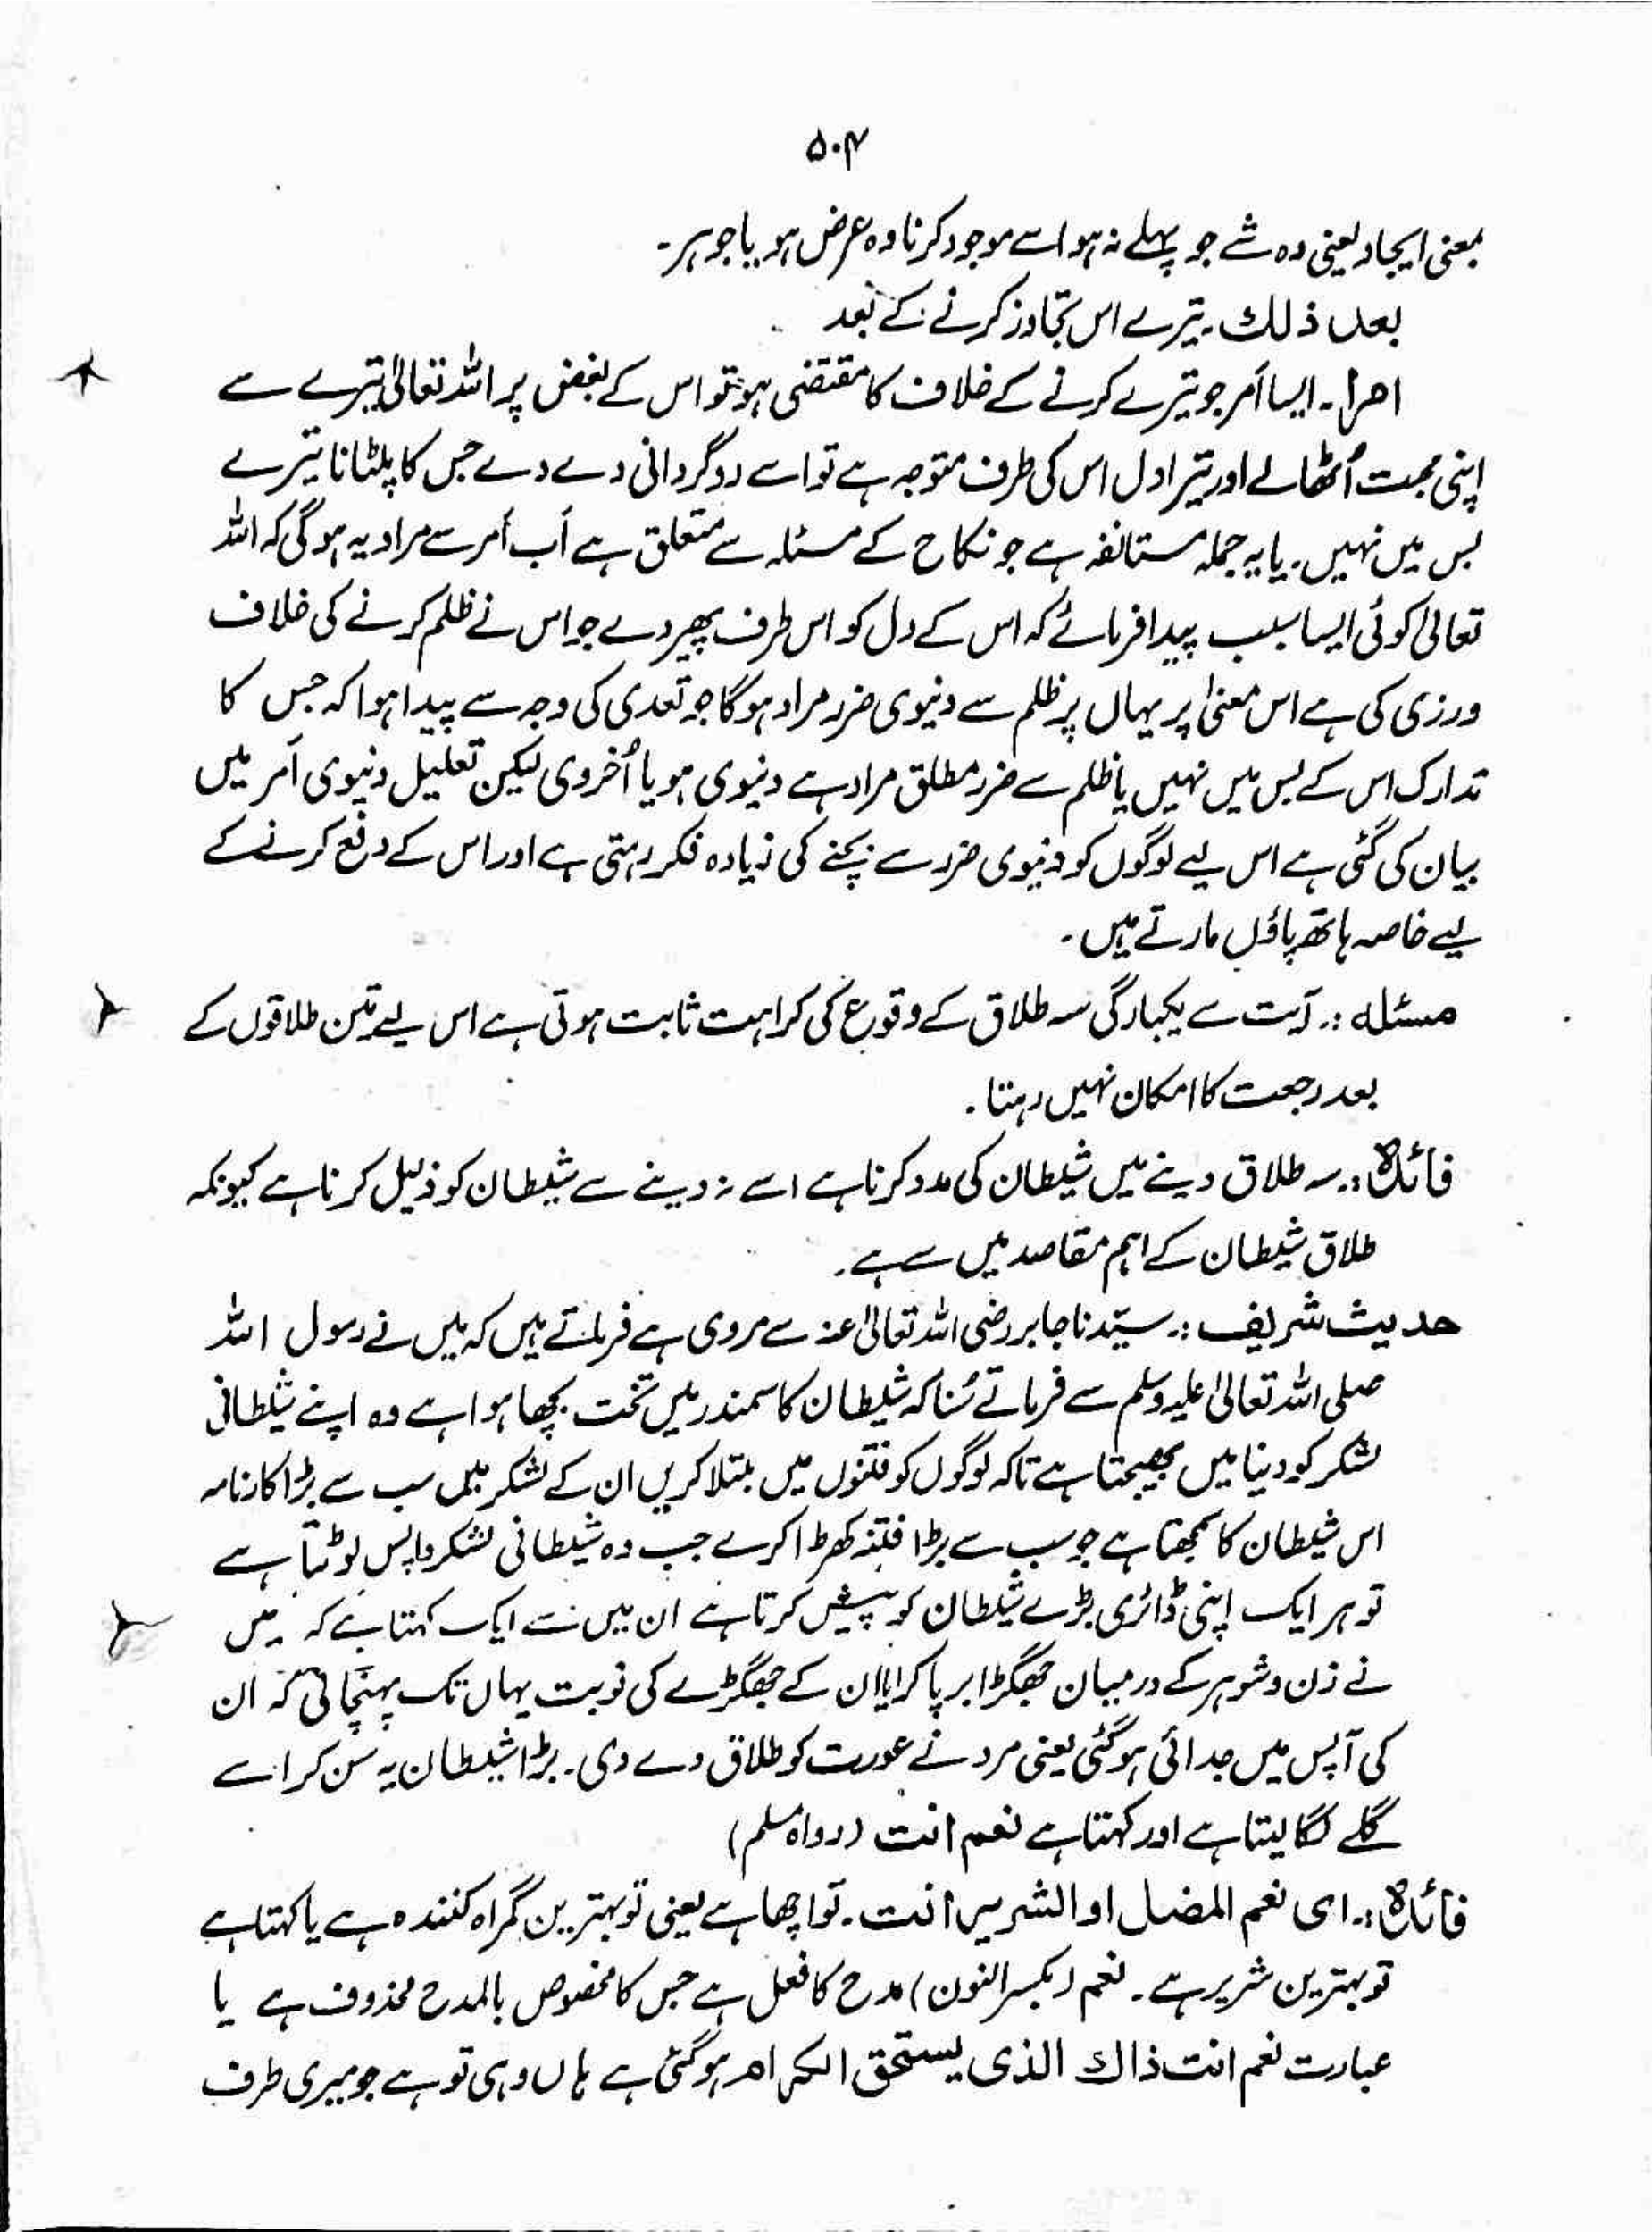 ۵۰۴
بمعنی ایجاد یعنی وہ شے جو پہلے نہ ہو اسے موجود کرنا وہ عرض ہو یا جوہر۔
بعد ذلك۔ تیرے اس تجاوز کرنے کے بعد
امرا۔ ایسا اَمر جو تیرے کرنے کے خلاف کا مقتضی ہو تو اس کے بغض پر اللہ تعالیٰ تیرے سے
اپنی محبت اُٹھالے اور تیرا دل اس کی طرف متوجہ ہے تو اسے روگردانی دے دے جس کا پلٹانا تیرے
بس میں نہیں۔ یا یہ جملہ مستانفہ ہے جو نکاح کے مسئلہ سے متعلق ہے اَب اَمر سے مراد یہ ہوگی کہ اللہ
تعالیٰ کوئی ایسا سبب پیدا فرمائے کہ اس کے دل کو اس طرف پھیر دے جو اس نے ظلم کرنے کی خلاف
ورزی کی ہے اس معنیٰ پر یہاں پر ظلم سے دنیوی ضرر مراد ہوگا جو تعدی کی وجہ سے پیدا ہوا کہ جس کا
تدارک اس کے بس میں نہیں یا ظلم سے ضرر مطلق مراد ہے دنیوی ہو یا اُخروی لیکن تعلیل دنیوی اَمر میں
بیان کی گئی ہے اس لیے لوگوں کو دنیوی ضرر سے بچنے کی زیادہ فکر رہتی ہے اور اس کے دفع کرنے کے
لیے خاصہ ہاتھ پاؤں مارتے ہیں۔
مسئلہ :۔ آیت سے یکبارگی سہ طلاق کے وقوع کی کراہت ثابت ہوتی ہے اس لیے تین طلاقوں کے
بعد رجعت کا امکان نہیں رہتا۔
فائدہ :۔ سہ طلاق دینے میں شیطان کی مدد کرنا ہے اسے نہ دینے سے شیطان کو ذلیل کرنا ہے کیونکہ
طلاق شیطان کے اہم مقاصد میں سے ہے۔
حدیث شریف :۔ سیّدنا جابر رضی اللہ تعالیٰ عنہ سے مروی ہے فرماتے ہیں کہ میں نے رسول اللہ
صلی اللہ تعالیٰ علیہ وسلم سے فرماتے سُنا کہ شیطان کا سمندر میں تخت بچھا ہوا ہے وہ اپنے شیطانی
لشکر کو دنیا میں بھیجتا ہے تاکہ لوگوں کو فتنوں میں مبتلا کریں ان کے لشکر میں سب سے بڑا کارنامہ
اس شیطان کا سمجھتا ہے جو سب سے بڑا فتنہ کھڑا کرے جب وہ شیطانی لشکر واپس لوٹتا ہے
تو ہر ایک اپنی ڈائری بڑے شیطان کو پیش کرتا ہے ان میں سے ایک کہتا ہے کہ میں
نے زن و شوہر کے درمیان جھگڑا برپا کرایا ان کے جھگڑے کی نوبت یہاں تک پہنچائی کہ ان
کی آپس میں جدائی ہوگئی یعنی مرد نے عورت کو طلاق دے دی۔ بڑا شیطان یہ سن کر اسے
گلے لگا لیتا ہے اور کہتا ہے نعم انت (رواہ مسلم)
فائدہ :۔ ای نعم المضل او الشریر انت۔ تو اچھا ہے یعنی تو بہترین گمراہ کنندہ ہے یا کہتا ہے
تو بہترین شریر ہے۔ نعم (بکسر النون) مدح کا فعل ہے جس کا مخصوص بالمدح محذوف ہے یا
عبارت نعم انت ذاك الذی یستحق الکرام ہوگئی ہے ہاں وہی تو ہے جو میری طرف